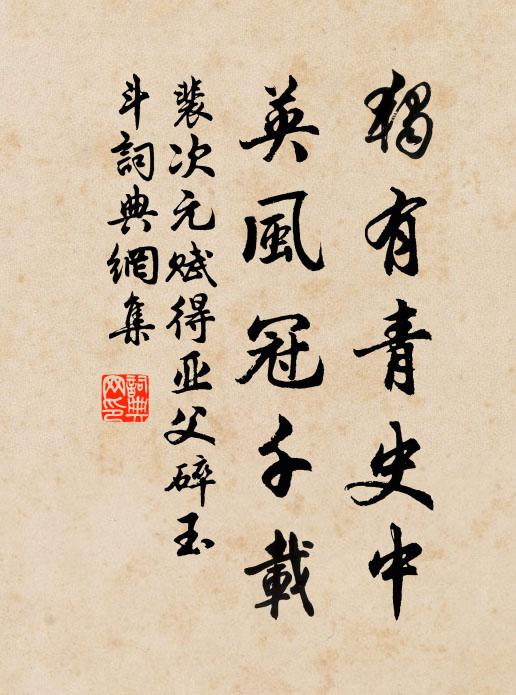 獨有青史中
英風冠千載
裴次元賦得亚父碎玉
斗詞典網集
詞典网印